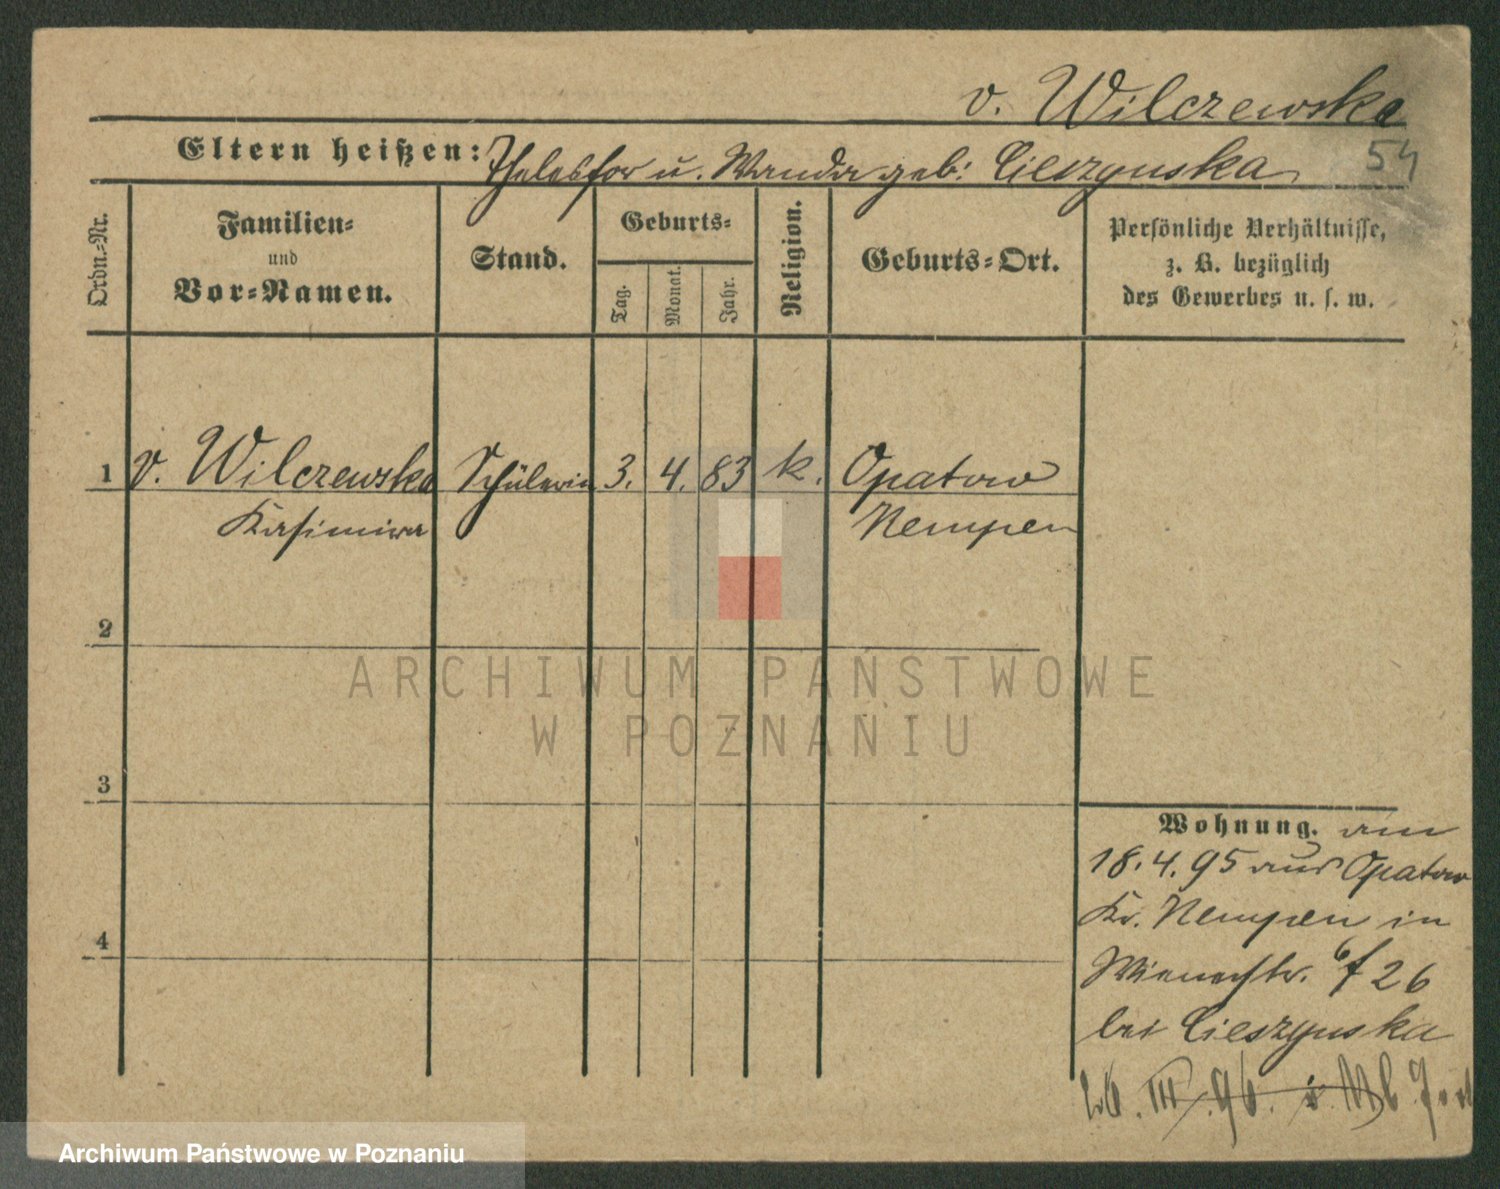 v. Wilczewska
Eltern heißen: Thelesfor u. Wanda geb: Cieszynska
54
Ordn.-Nr.
Familien-
und
Vor-Namen.
Stand.
Geburts-
Tag.
Monat.
Jahr.
Religion.
Geburts-Ort.
Persönliche Verhältnisse,
z. B. bezüglich
des Gewerbes u. s. w.
1 v. Wilczewska Schülerin 3. 4. 83 k. Opatow
Kasimira Kempen
2
3
4
Wohnung. am
18.4.95 aus Opatow
Kr. Kempen in
Wienerstr. 6 26
bei Cieszynska
26. III. 96.
ARCHIWUM PAŃSTWOWE
W POZNANIU
Archiwum Państwowe w Poznaniu